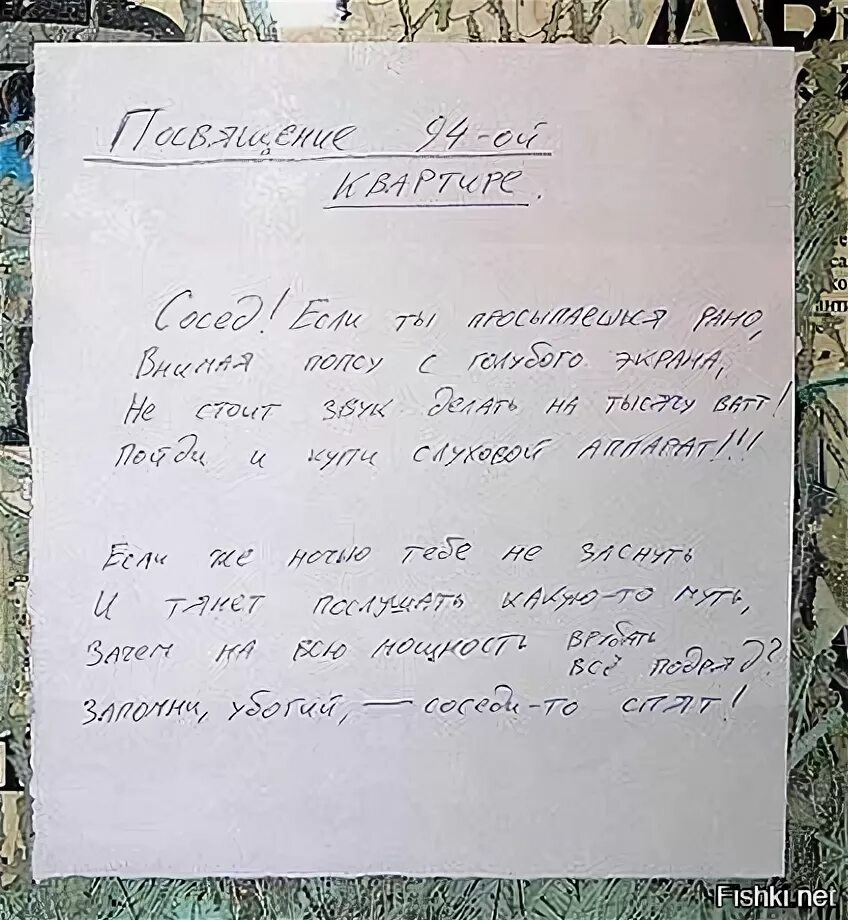 Посвящение 94-ой
квартире.
Сосед! Если ты просыпаешься рано,
Внимая попсу с голубого экрана,
Не стоит звук делать на тысячу ватт!
Пойди и купи слуховой аппарат!!!
Если же ночью тебе не заснуть
И тянет послушать какую-то муть,
Зачем на всю мощность врубать
всё подряд?
Запомни, убогий, — соседи-то спят!
Fishki.net